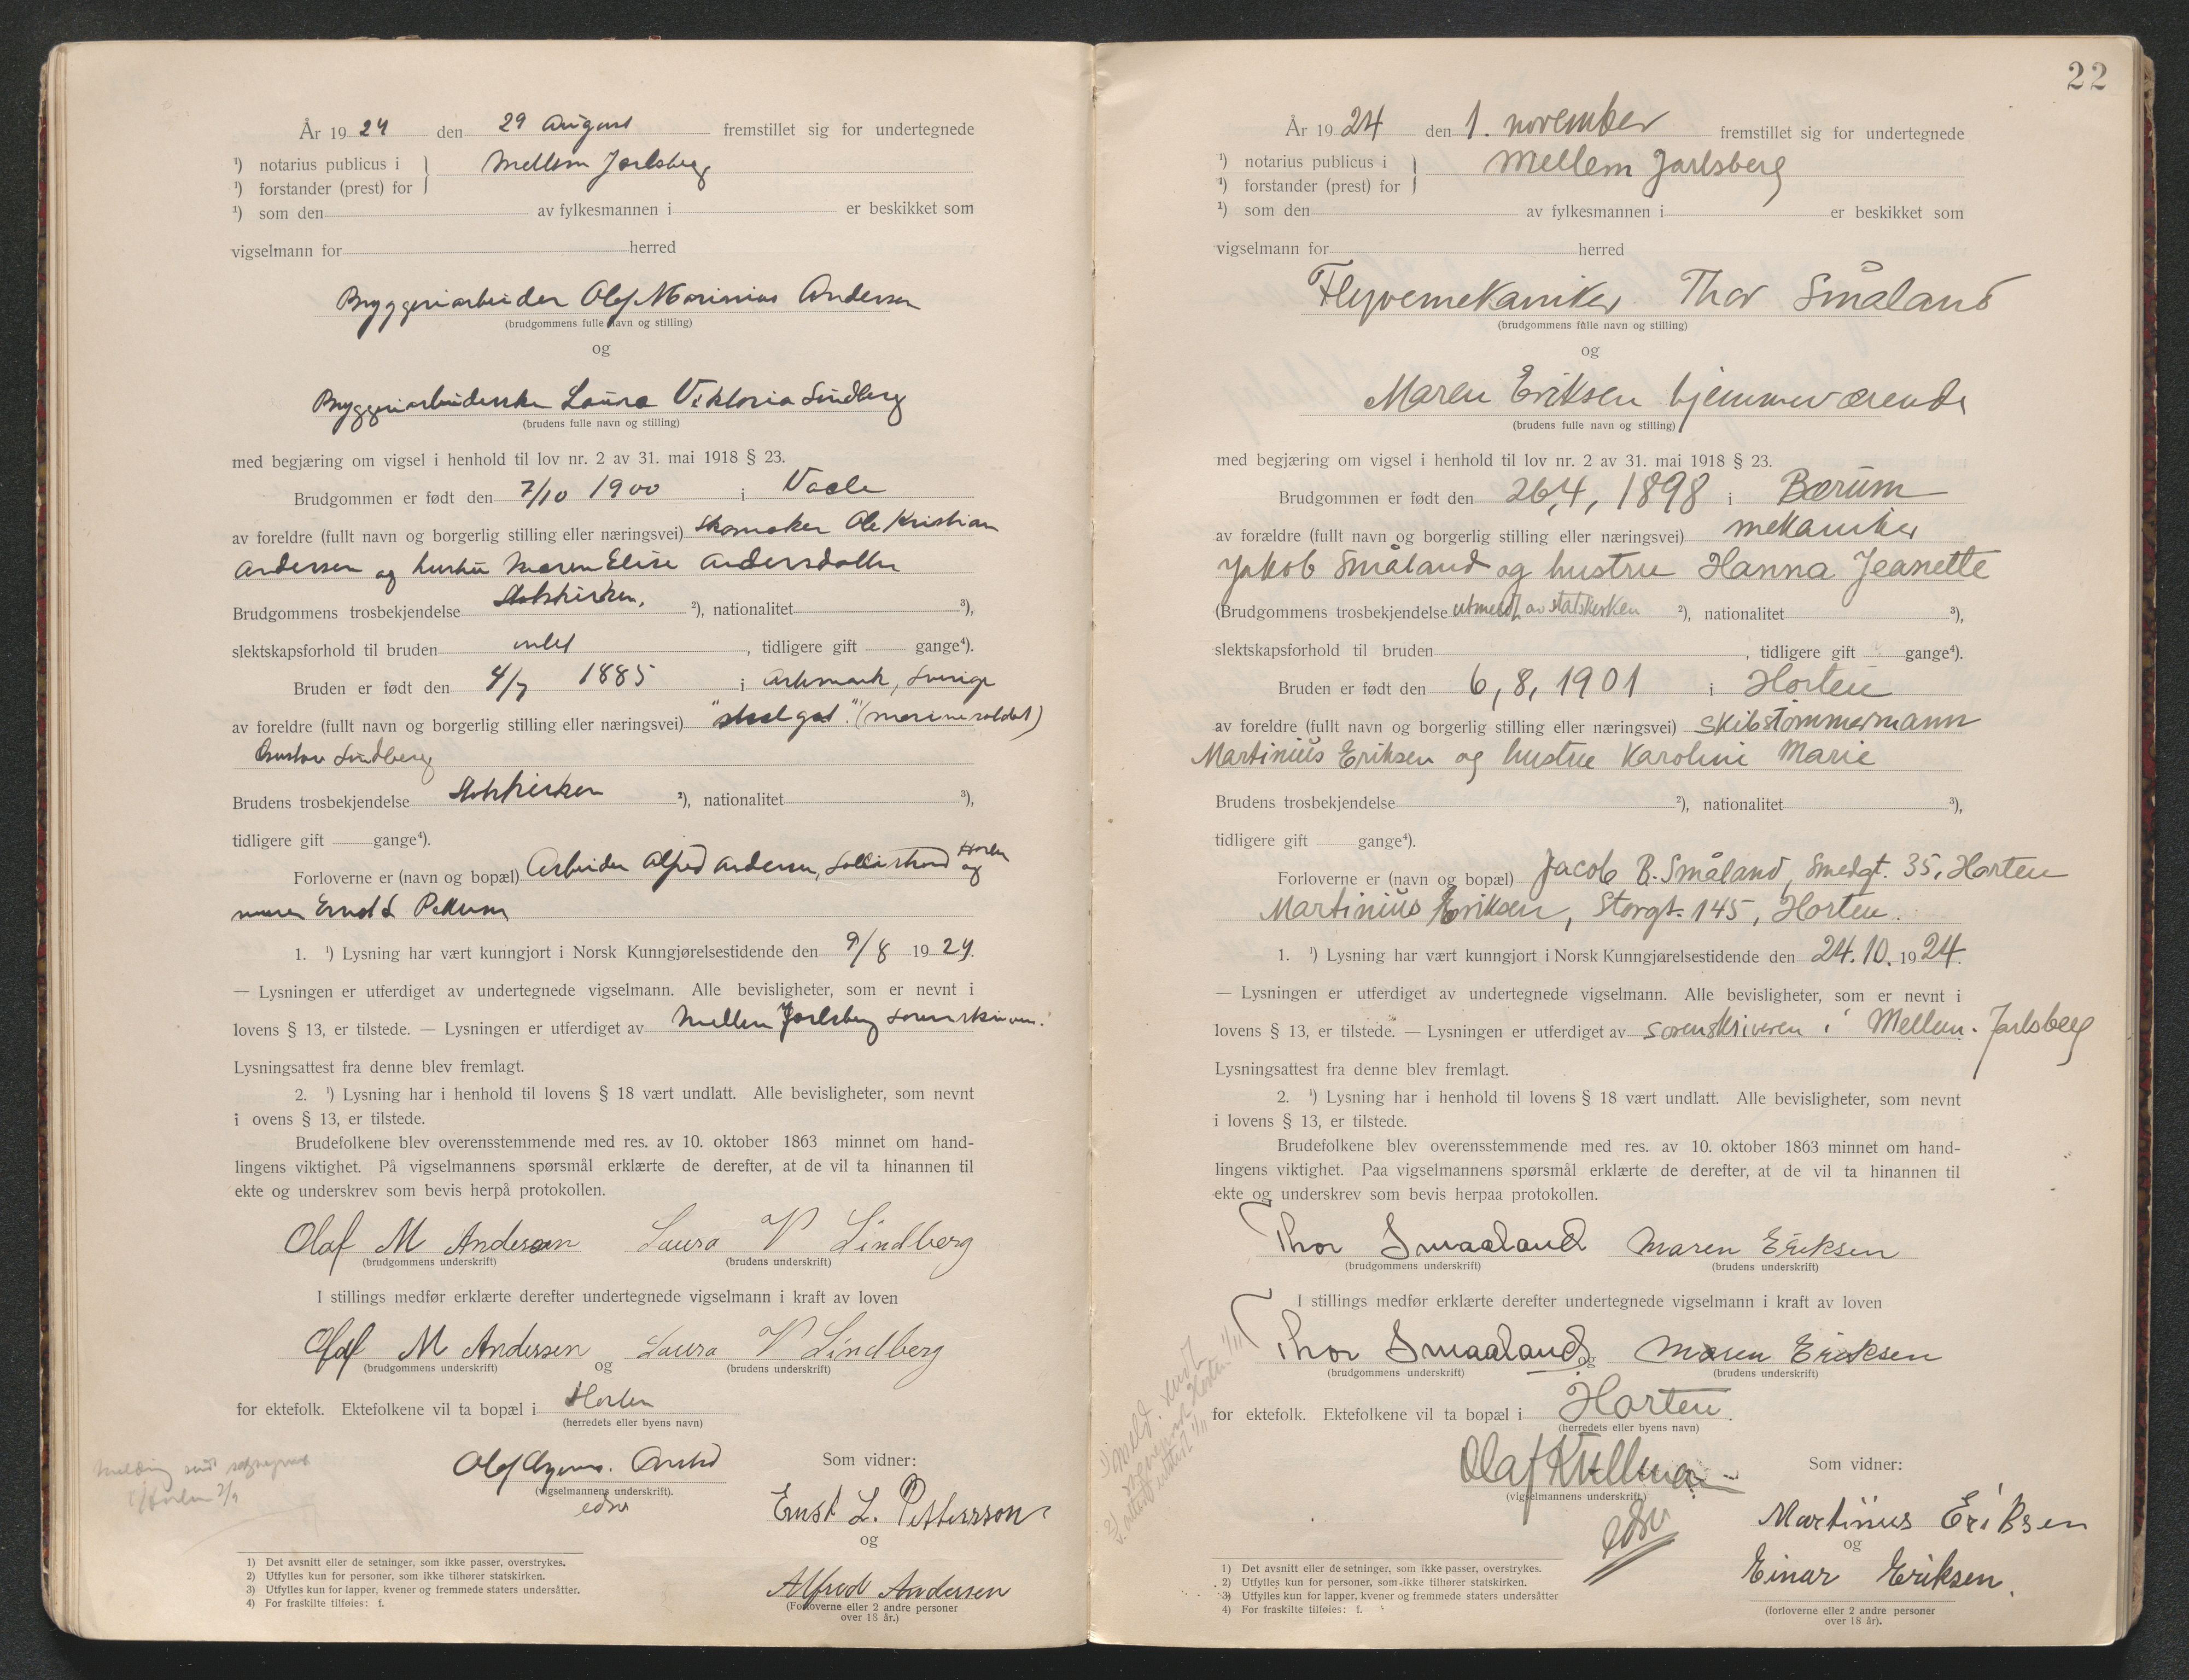 År 19 24 den 29 August fremstillet sig for undertegnede
¹) notarius publicus i } Mellem Jarlsberg
¹) forstander (prest) for
¹) som den av fylkesmannen i er beskikket som
vigselmann for herred
Bryggeriarbeider Olaf Marinius Andersen
(brudgommens fulle navn og stilling)
og
Bryggeriarbeiderske Laura Viktoria Lindberg
(brudens fulle navn og stilling)
med begjæring om vigsel i henhold til lov nr. 2 av 31. mai 1918 § 23.
Brudgommen er født den 7/10 1900 i Vaale
av foreldre (fullt navn og borgerlig stilling eller næringsvei) Skomaker Ole Kristian
Andersen og hustru Maren Elise Andersdatter
Brudgommens trosbekjendelse Statskirken, ²), nationalitet ³),
slektskapsforhold til bruden intet, tidligere gift gange⁴).
Bruden er født den 4/7 1885 i Arkmark, Sverige
av foreldre (fullt navn og borgerlig stilling eller næringsvei) (marinesoldat)
Gustav Lindberg
Brudens trosbekjendelse Statskirken ²), nationalitet ³),
tidligere gift gange⁴).
Forloverne er (navn og bopæl) Arbeider Alfred Andersen, Sollistrand Horten og
murer Pettersson
1. ¹) Lysning har vært kunngjort i Norsk Kunngjørelsestidende den 9/8 1924.
— Lysningen er utferdiget av undertegnede vigselmann. Alle bevisligheter, som er nevnt i
lovens § 13, er tilstede. — Lysningen er utferdiget av Mellem Jarlsberg sorenskriveri.
Lysningsattest fra denne blev fremlagt.
2. ¹) Lysning har i henhold til lovens § 18 vært undlatt. Alle bevisligheter, som nevnt
i ovens § 13, er tilstede.
Brudefolkene blev overensstemmende med res. av 10. oktober 1863 minnet om hand-
lingens viktighet. På vigselmannens spørsmål erklærte de derefter, at de vil ta hinannen til
ekte og underskrev som bevis herpå protokollen.
Olaf M Andersen Laura V Lindberg
(brudgommens underskrift) (brudens underskrift)
I stillings medfør erklærte derefter undertegnede vigselmann i kraft av loven
Olaf M Andersen og Laura V Lindberg
(brudgommens underskrift) (brudens underskrift)
for ektefolk. Ektefolkene vil ta bopæl i Horten
(herredets eller byens navn)
(vigselmannens underskrift).
edsv
Som vidner:
Ernst L. Pettersson
og
Alfred Andersen
(Forloverne eller 2 andre personer
over 18 år.)
1) Det avsnitt eller de setninger, som ikke passer, overstrykes.
2) Utfylles kun for personer, som ikke tilhører statskirken.
3) Utfylles kun for lapper, kvener og fremmede staters undersåtter.
4) For fraskilte tilføies: f.
22
År 19 24 den 1. november fremstillet sig for undertegnede
¹) notarius publicus i } Mellem Jarlsberg
¹) forstander (prest) for
¹) som den av fylkesmannen i er beskikket som
vigselmann for herred
Flyvemekaniker Thor Småland
(brudgommens fulle navn og stilling)
og
Maren Eriksen hjemmeværende
(brudens fulle navn og stilling)
med begjæring om vigsel i henhold til lov nr. 2 av 31. mai 1918 § 23.
Brudgommen er født den 26,4, 1898 i Bærum
av forældre (fullt navn og borgerlig stilling eller næringsvei) mekaniker
Jakob Småland og hustru Hanna Jeanette
(Brudgommens trosbekjendelse utmeldt av statskirken ²), nationalitet ³),
slektskapsforhold til bruden , tidligere gift gange⁴).
Bruden er født den 6, 8, 1901 i Horten
av foreldre (fullt navn og borgerlig stilling eller næringsvei) skibstømmermann
Martinius Eriksen og hustru Karoline Marie
Brudens trosbekjendelse ²), nationalitet ³),
tidligere gift gange⁴).
Forloverne er (navn og bopæl) Jacob B. Småland, Smedgt. 35, Horten
Martinius Eriksen, Storgt. 145, Horten.
1. ¹) Lysning har vært kunngjort i Norsk Kunngjørelsestidende den 24.10.1924.
— Lysningen er utferdiget av undertegnede vigselmann. Alle bevisligheter, som er nevnt i
lovens § 13, er tilstede. — Lysningen er utferdiget av sorenskriveren i Mellem-Jarlsberg
Lysningsattest fra denne blev fremlagt.
2. ¹) Lysning har i henhold til lovens § 18 vært undlatt. Alle bevisligheter, som nevnt
i lovens § 13, er tilstede.
Brudefolkene blev overensstemmende med res. av 10. oktober 1863 minnet om hand-
lingens viktighet. Paa vigselmannens spørsmål erklærte de derefter, at de vil ta hinannen til
ekte og underskrev som bevis herpaa protokollen.
Thor Smaaland Maren Eriksen
(brudgommens underskrift) (brudens underskrift)
I stillings medfør erklærte derefter undertegnede vigselmann i kraft av loven
Thor Smaaland og Maren Eriksen
(brudgommens underskrift) (brudens underskrift)
for ektefolk. Ektefolkene vil ta bopæl i Horten.
(herredets eller byens navn)
Olaf Kullman
(vigselmannens underskrift)
edsv
Som vidner:
Martinius Eriksen
og
Einar Eriksen.
(forloverne eller 2 andre personer
over 18 år).
1) Det avsnitt eller de setninger, som ikke passer, overstrykes.
2) Utfylles kun for personer, som ikke tilhører statskirken.
3) Utfylles kun for lapper, kvener og fremmede staters undersåtter
4) For fraskilte tilføies: f.